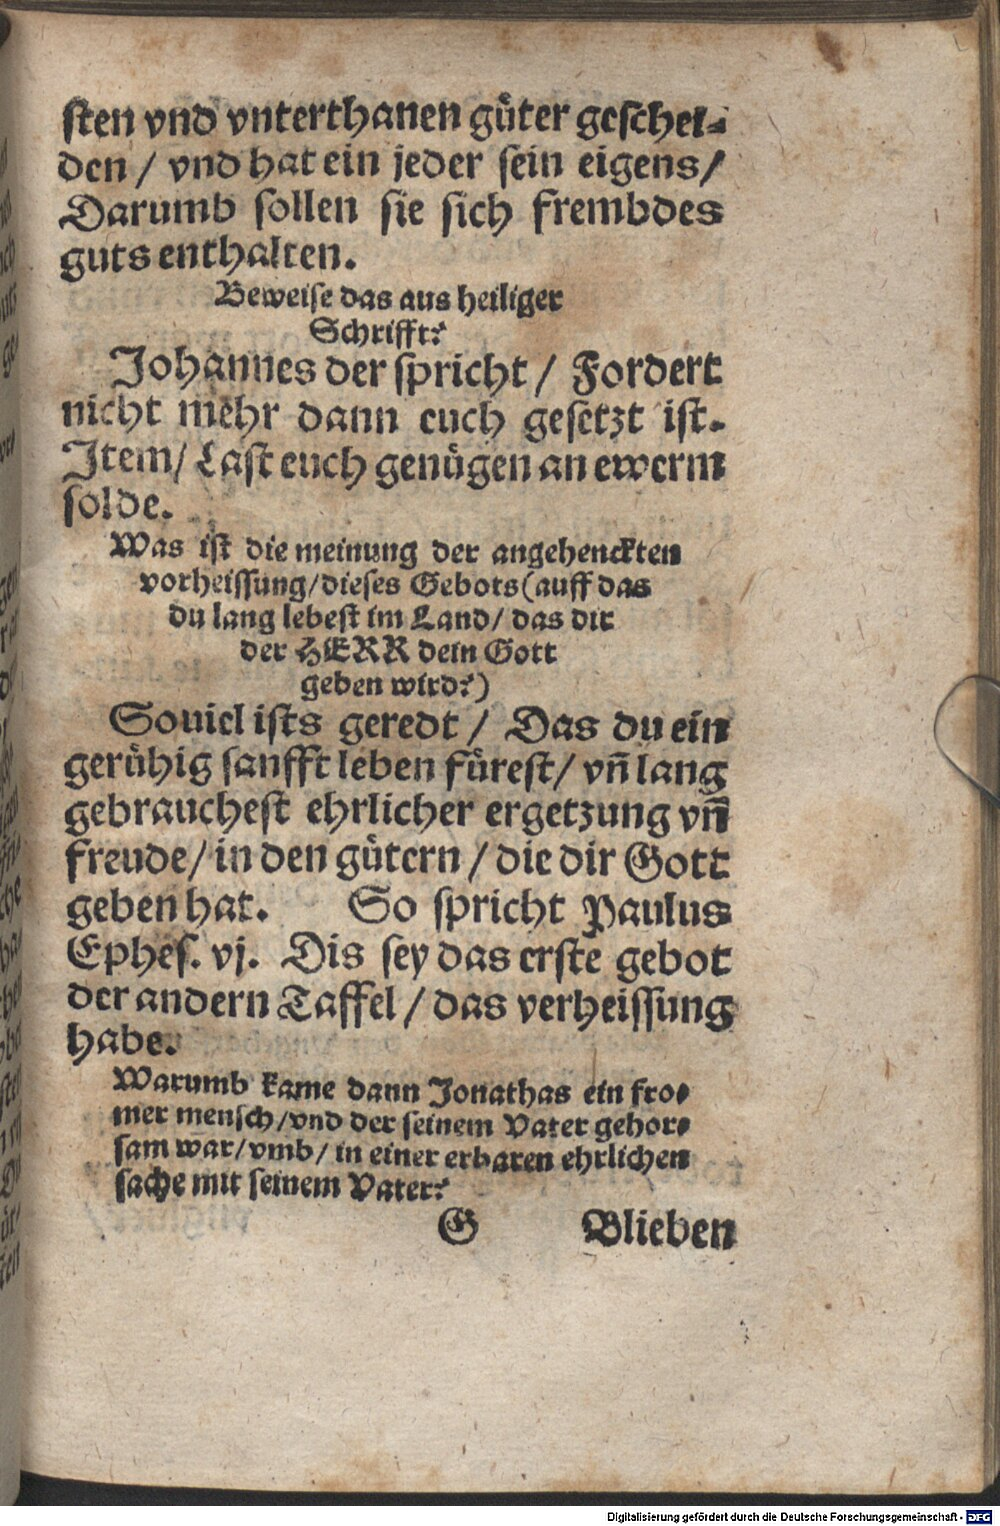 sten vnd vnterthanen güter geschei-
den / vnd hat ein jeder sein eigens /
Darumb sollen sie sich frembdes
guts enthalten.
Beweise das aus heiliger
Schrifft?
Johannes der spricht / Fordert
nicht mehr dann euch gesetzt ist.
Item / Last euch genügen an ewerm
solde.
Was ist die meinung der angehenckten
vorheissung / dieses Gebots (auff das
du lang lebest im Land / das dir
der HERR dein Gott
geben wird?)
Souiel ists geredt / Das du ein
gerühig sanfft leben fürest / vn̄ lang
gebrauchest ehrlicher ergetzung vn̄
freude / in den gütern / die dir Gott
geben hat. So spricht Paulus
Ephes. vj. Dis sey das erste gebot
der andern Taffel / das verheissung
habe.
Warumb kame dann Jonathas ein fro-
mer mensch / vnd der seinem Vater gehor-
sam war / vmb / in einer erbaren ehrlichen
sache mit seinem Vater?
G Blieben
Digitalisierung gefördert durch die Deutsche Forschungsgemeinschaft - DFG